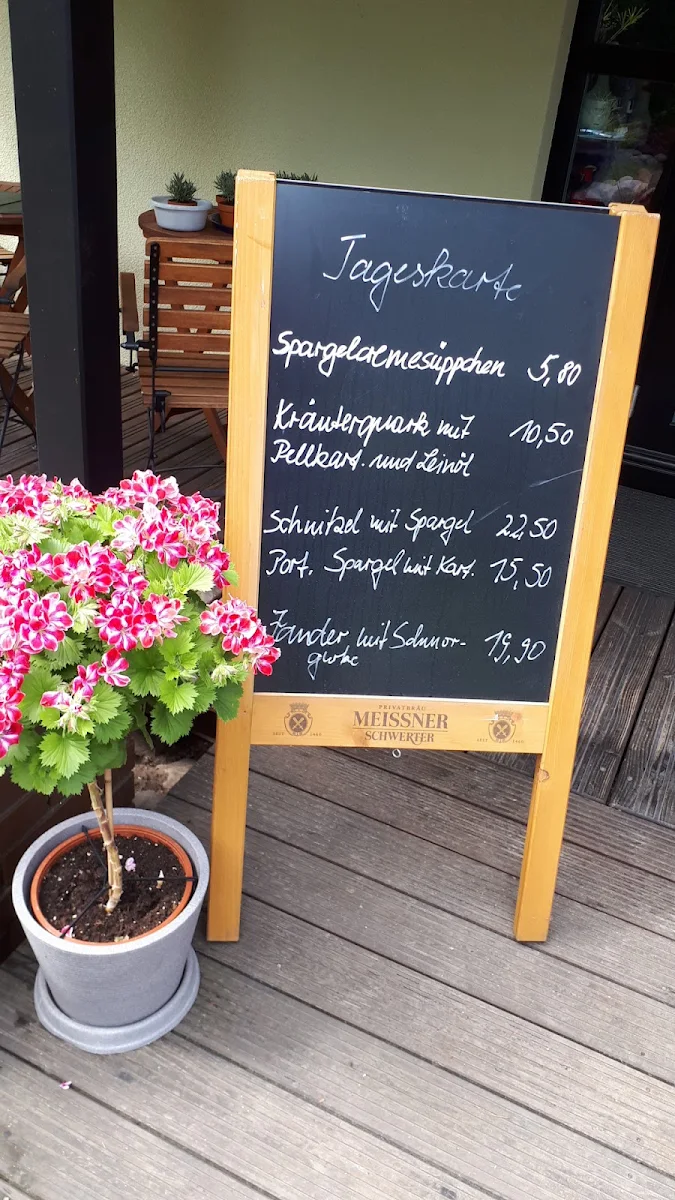 Tageskarte
Spargelcremesüppchen 5,80
Kräuterquark mit 10,50
Pellkart. und Leinöl
Schnitzel mit Spargel 22,50
Port. Spargel mit Kart. 15,50
Zander mit Schmor- 19,90
gurke
PRIVATBRÄU
MEISSNER
SCHWERTER